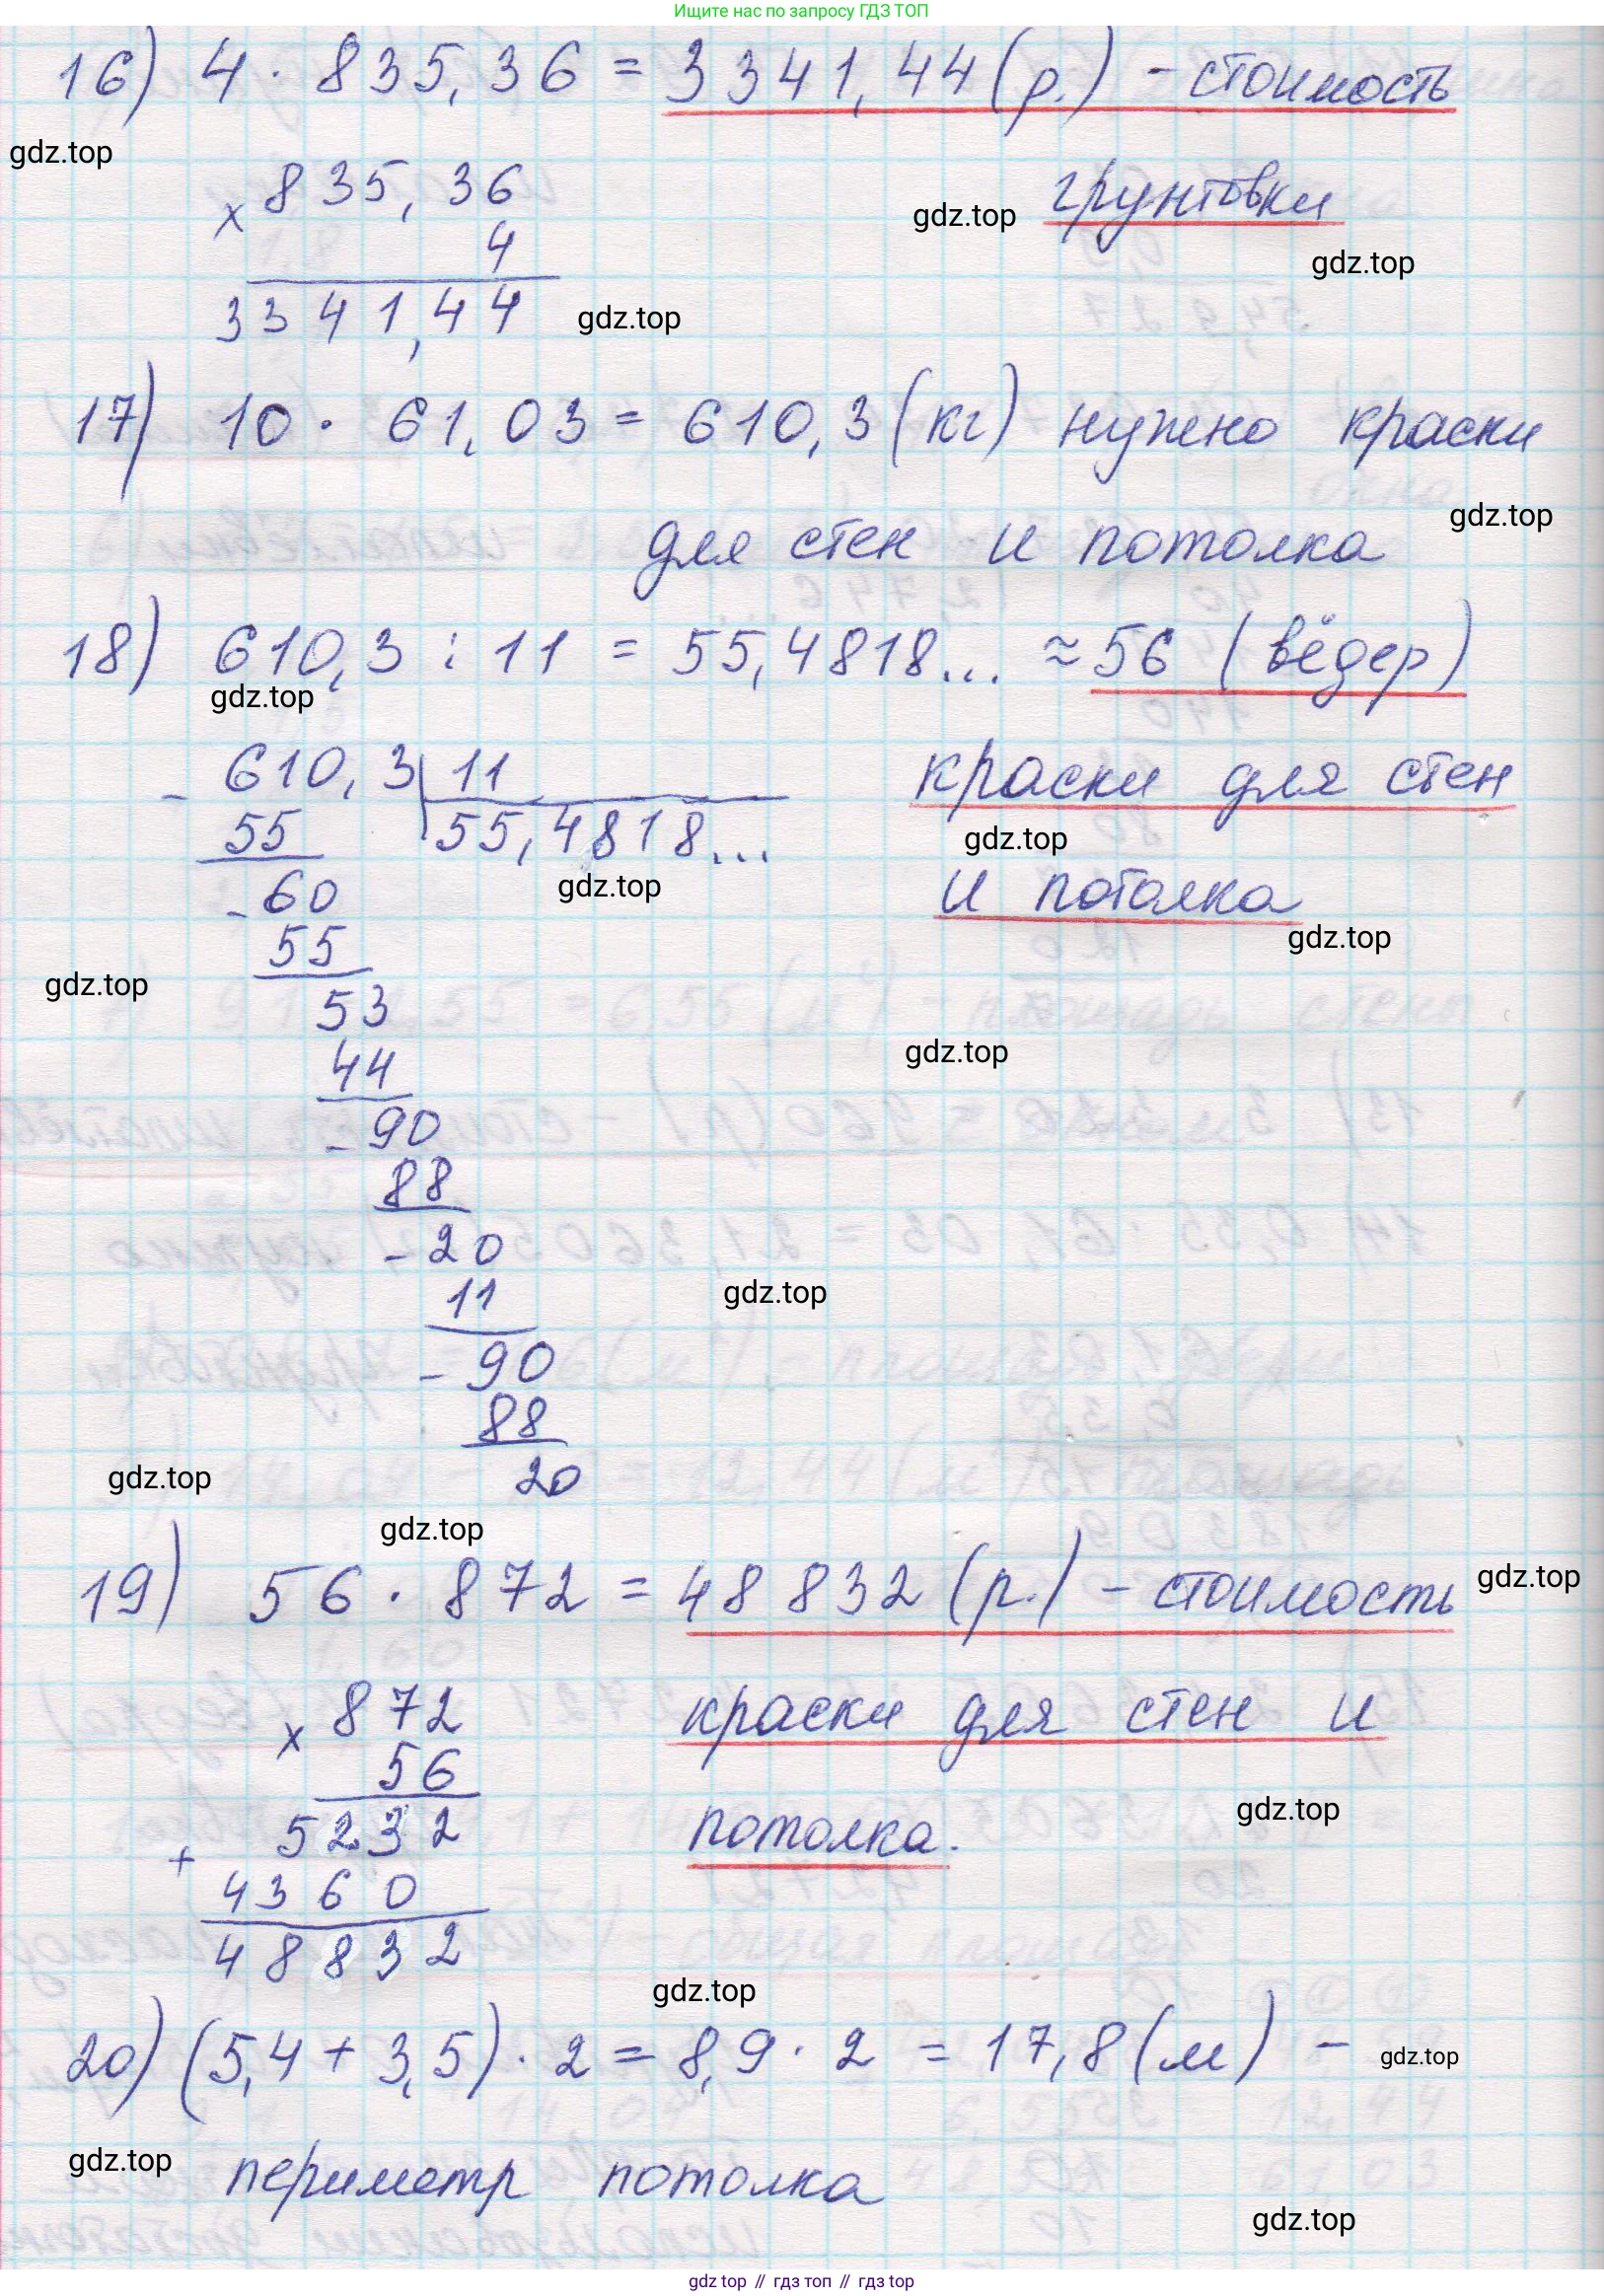 Ищите нас по запросу ГДЗ ТОП
16) 4 · 835,36 = 3341,44 (р.) - стоимость
gdz.top
× 835,36
грунтовки
gdz.top
4
gdz.top
3341,44
gdz.top
17) 10 · 61,03 = 610,3 (кг) нужно краски
gdz.top
для стен и потолка
18) 610,3 : 11 = 55,4818... ≈ 56 (вёдер)
gdz.top
- 610,3 | 11
краски для стен
55 55,4818...
gdz.top
gdz.top
- 60
и потолка
gdz.top
55
gdz.top
53
44
gdz.top
- 90
88
- 20
11
gdz.top
- 90
88
20
gdz.top
gdz.top
19) 56 · 872 = 48832 (р.) - стоимость
gdz.top
× 872
краски для стен и
56
gdz.top
5232
потолка.
+
4360
48832
gdz.top
20) (5,4 + 3,5) · 2 = 8,9 · 2 = 17,8 (м) -
gdz.top
gdz.top
периметр потолка
gdz.top
gdz.top // гдз топ // гдз top